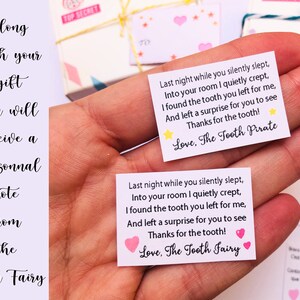 long
your
gift
will
a
TOP SECRET
Last night while you silently slept,
Into your room I quietly crept,
I found the tooth you left for me,
And left a surprise for you to see
Thanks for the tooth!
Love, The Tooth Pirate
Last night while you silently slept,
Into your room I quietly crept,
I found the tooth you left for me,
And left a surprise for you to see
Thanks for the tooth!
Love, The Tooth Fairy
the
Fairy